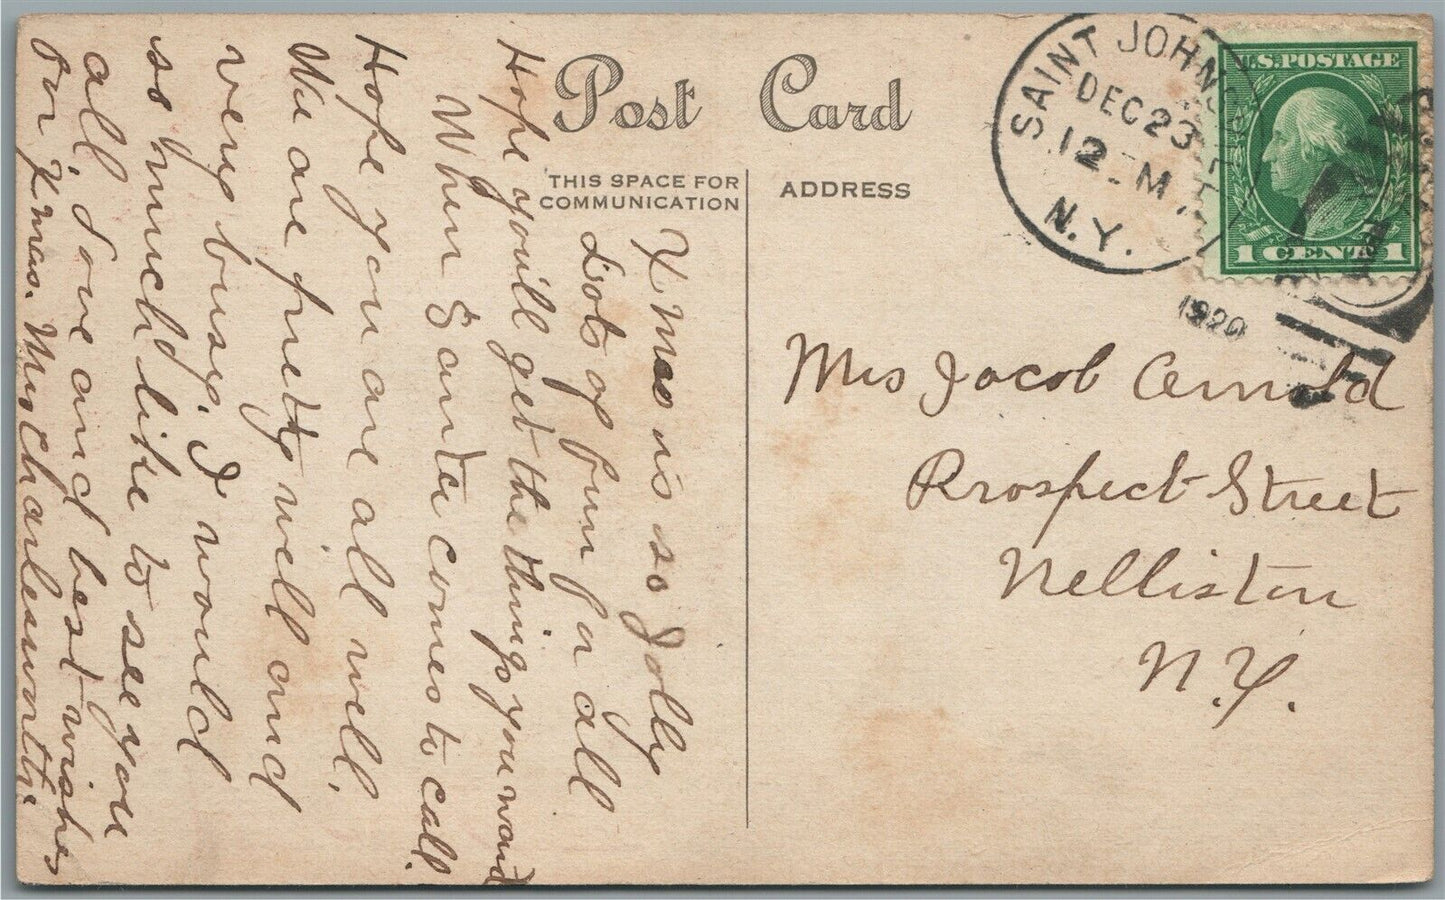 Post Card
THIS SPACE FOR
COMMUNICATION
ADDRESS
SAINT JOHNSVILLE
DEC 23
12 M
N.Y.
1920
U.S. POSTAGE
1 CENT 1
Mrs Jacob Arnold
Prospect Street
Nelliston
N.Y.
Xmas is so Jolly
Lots of fun for all
Hope you'll get the things you want
When Santa comes to call.
Hope you are all well,
We are pretty well and
very busy. I would
so much like to see you
all, Love and best wishes
for Xmas. Mrs Charlesworth.